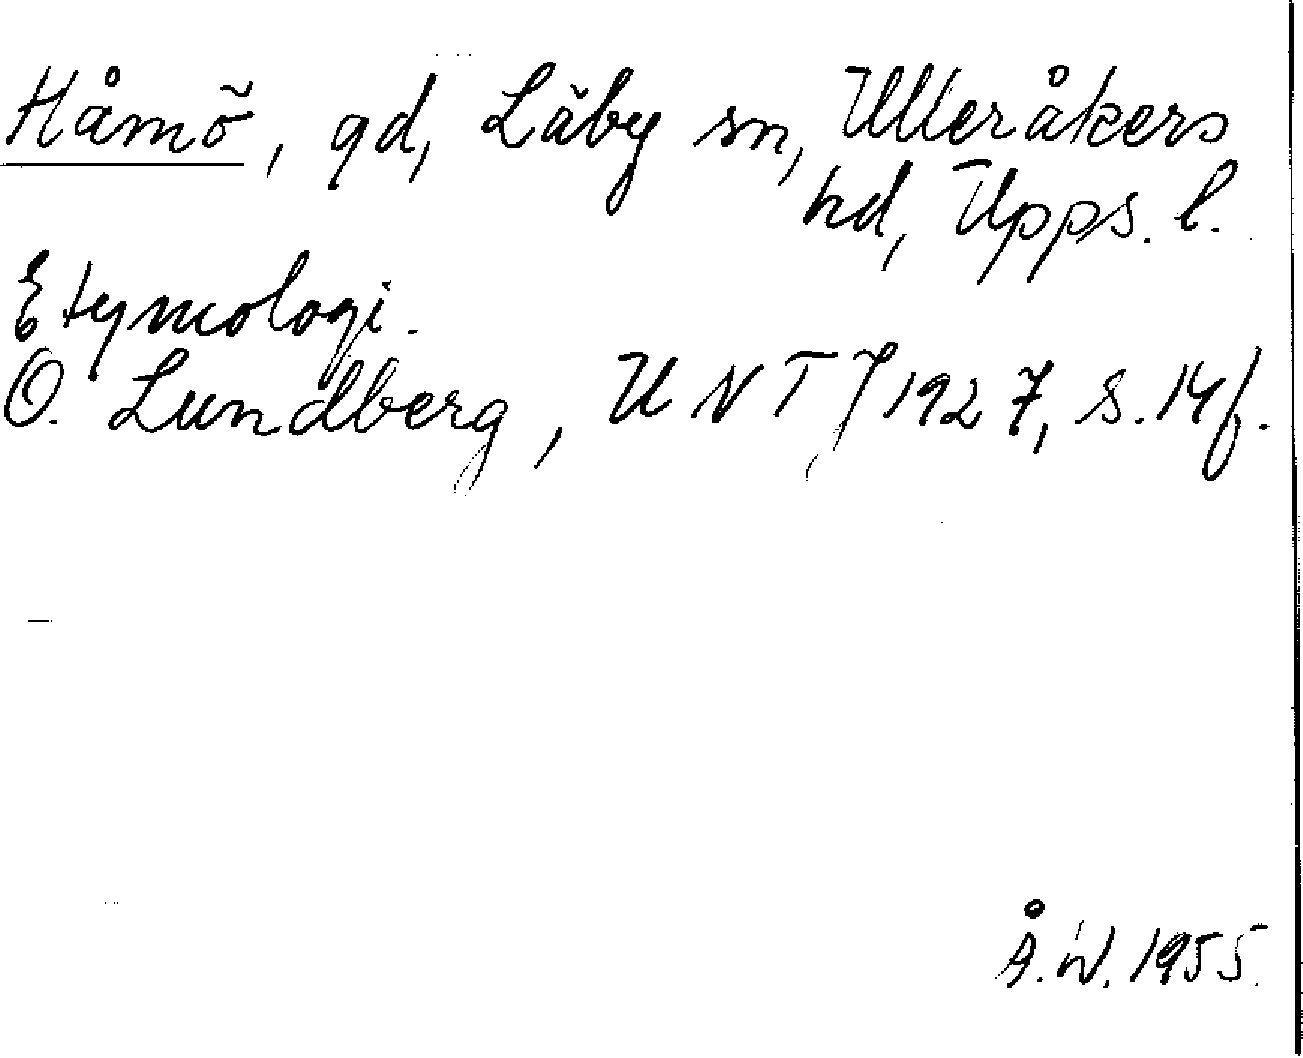 Håmö, gd, Läby sn, Ulleråkers
hd, Upps. l.
Etymologi.
O. Lundberg, UNT 7/1 1927, s. 14 f.
Å. W. 1955.